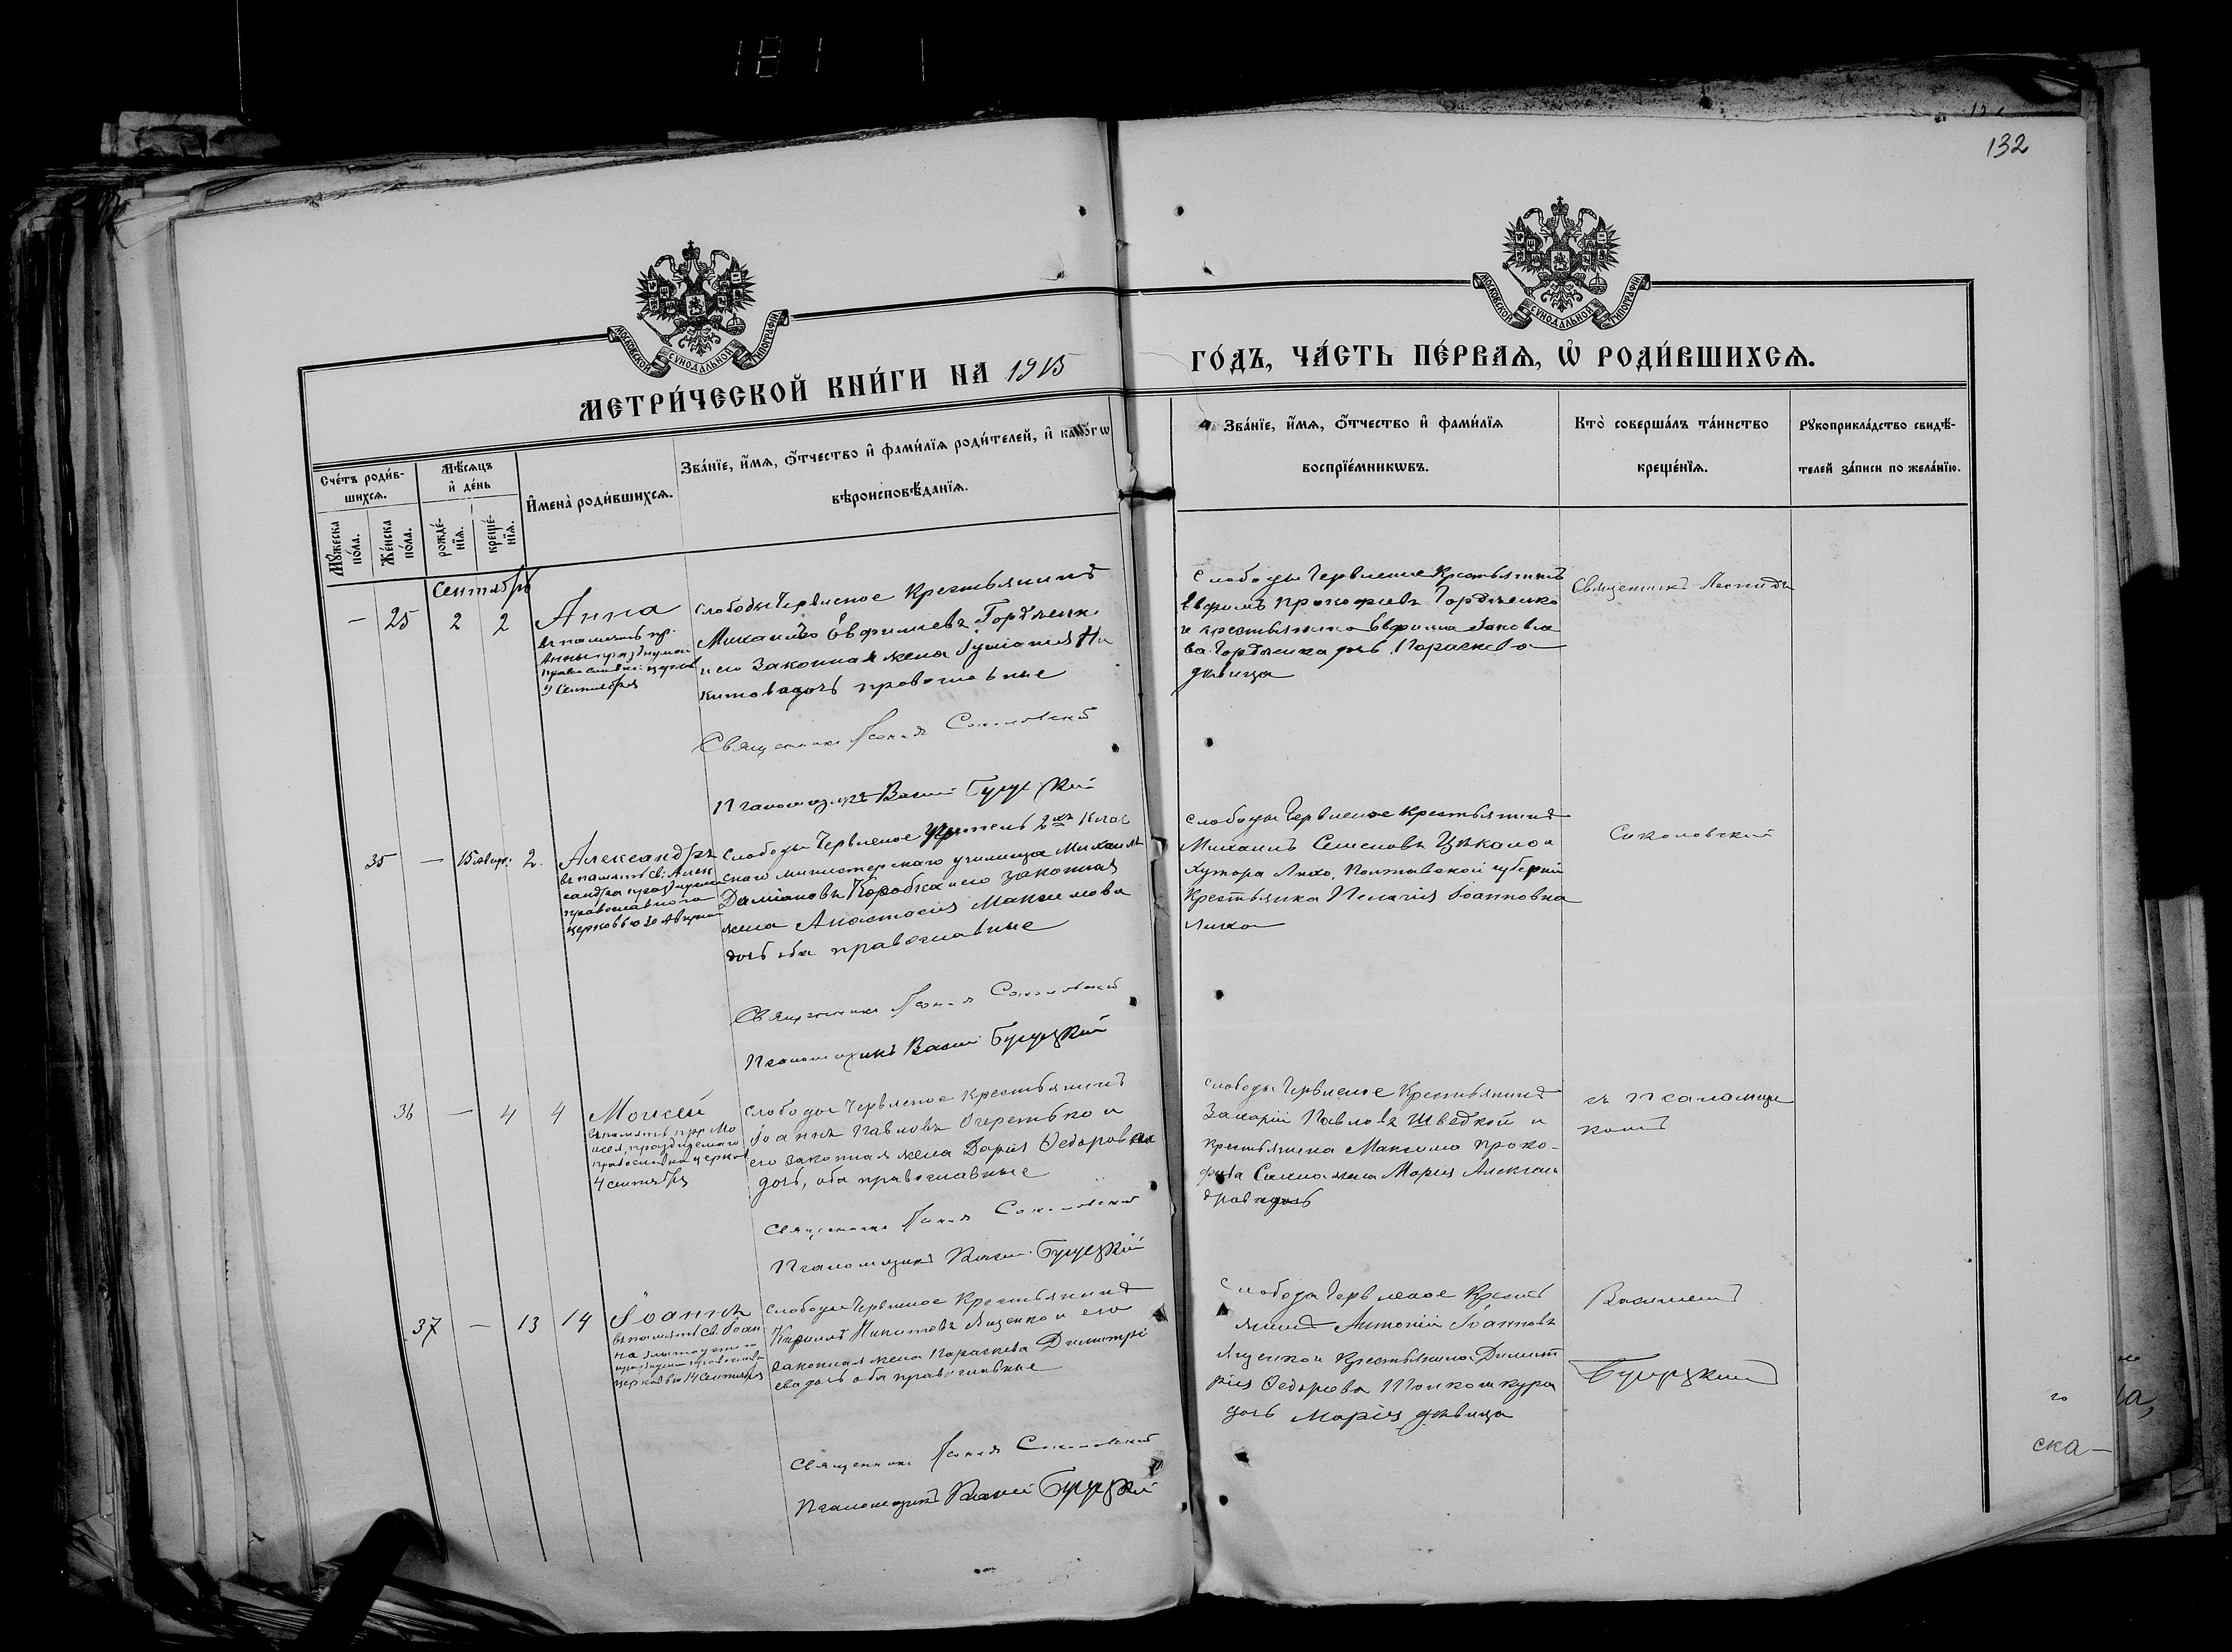 132
МОСКОВСКОЙ СУНОДАЛЬНОЙ ТИПОГРАФІИ
МОСКОВСКОЙ СУНОДАЛЬНОЙ ТИПОГРАФІИ
МЕТРИ́ЧЕСКОЙ КНИ́ГИ НА 1915
ГО́ДЪ, ЧА́СТЬ ПЕ́РВАѦ, Ѡ РОДИ́ВШИХСѦ.
Сче́тъ роди́в-
шихсѧ.
Мꙋжеска
по́ла.
Же́нска
по́ла.
Мѣ́сѧцъ
и де́нь
рожде́-
нїѧ.
креще́-
нїѧ.
Имена̀ роди́вшихсѧ.
Зва́нїе, и́мѧ, ѻ́тчество и фами́лїѧ роди́телей, и како́гѡ
вѣроисповѣ́данїѧ.
Зва́нїе, и́мѧ, ѻ́тчество и фами́лїѧ
воспрїе́мникѡвъ.
Кто̀ соверша́лъ та́инство
креще́нїѧ.
Рꙋкоприкла́дство свидѣ́-
телей за́писи по жела́нїю.
Сентябрь
— 25 2 2
Анна
въ память пр.
Анны празднуем.
православн. церков
9 Сентября
слободы Червленое Крестьянинъ
Михаилъ Евфимиевъ Гордiенк
и его законная жена Iулiанiя Ни
китова дочь православные
Священникъ Леонидъ Соколовскiй
Псаломщикъ Васил Буруцкiй
Слободы Червленое Крестьянинъ
Евфимъ Прокофiевъ Гордiенко
и крестьянина Евфима Iаковле
ва Гордiенка дочь Параскева
дѣвица
Священникъ Леонидъ
35 — 15 авгус. 2
Александръ
въ память св. Алек
сандра празднуем
православною
церковью 30 Августа
Слободы Червленое Учитель 2хъ клас
снаго министерскаго училища Михаилъ
Дамiановъ Коробка и его законная
жена Анастасiя Максимова
дочь оба православные
Священникъ Леонидъ Соколовскiй
Псаломщикъ Васил Буруцкiй
слободы Червленое крестьянинъ
Михаилъ Семеновъ и
хутора Лихо, Полтавской губернiи
крестьянка Пелагiя Iоанновна
Лихо
Соколовскiй
36 — 4 4
Моисей
въ память прр. Мо
исея, празднуемаго
православн. церков
4 сентября
слободы Червленое Крестьянинъ
Iоаннъ Павловъ Очеретько и
его законная жена Дарiя Ѳедоровна
дочь, оба православные
Священникъ Леонидъ Соколовскiй
Псаломщикъ Васил. Буруцкiй
слободы Червленое Крестьянинъ
Захарiй Павловъ Шведкой и
крестьянина Максима Проко-
фьева жена Марiя Алексан
дрова дочь
съ Псаломщи
комъ
37 — 13 14
Iоаннъ
въ память св. Iоан
на златоуста
церковью 14 Сентября
слободы Червленое Крестьянинъ
Кириллъ Никитовъ Яценко и его
законная жена Параскева Димитрi
ева дочь оба православные
Священникъ Леонидъ Соколовскiй
Псаломщикъ Васил Буруцкiй
Слобода Червленое Кресть
янинъ Антонiй Iоанновъ
Яценко и Крестьянина Димит
рiя Ѳедорова Тонкошкура
дочь Марiя дѣвица
Василiемъ
Буруцкимъ
ска-